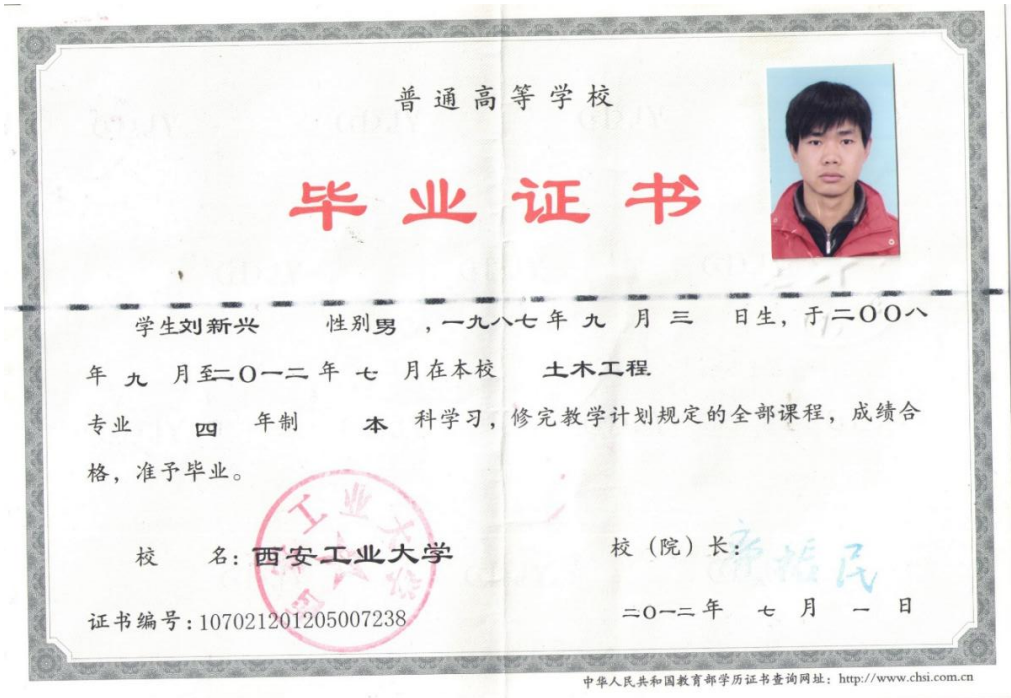 普通高等学校
毕业证书
学生刘新兴 性别男 ,一九八七年九月三日生，于二〇〇八
年九月至二〇一二年七月在本校 土木工程
专业 四 年制 本 科学习，修完教学计划规定的全部课程，成绩合
格，准予毕业。
校 名：西安工业大学
校（院）长：
证书编号：107021201205007238
二〇一二年七月一日
中华人民共和国教育部学历证书查询网址：http://www.chsi.com.cn